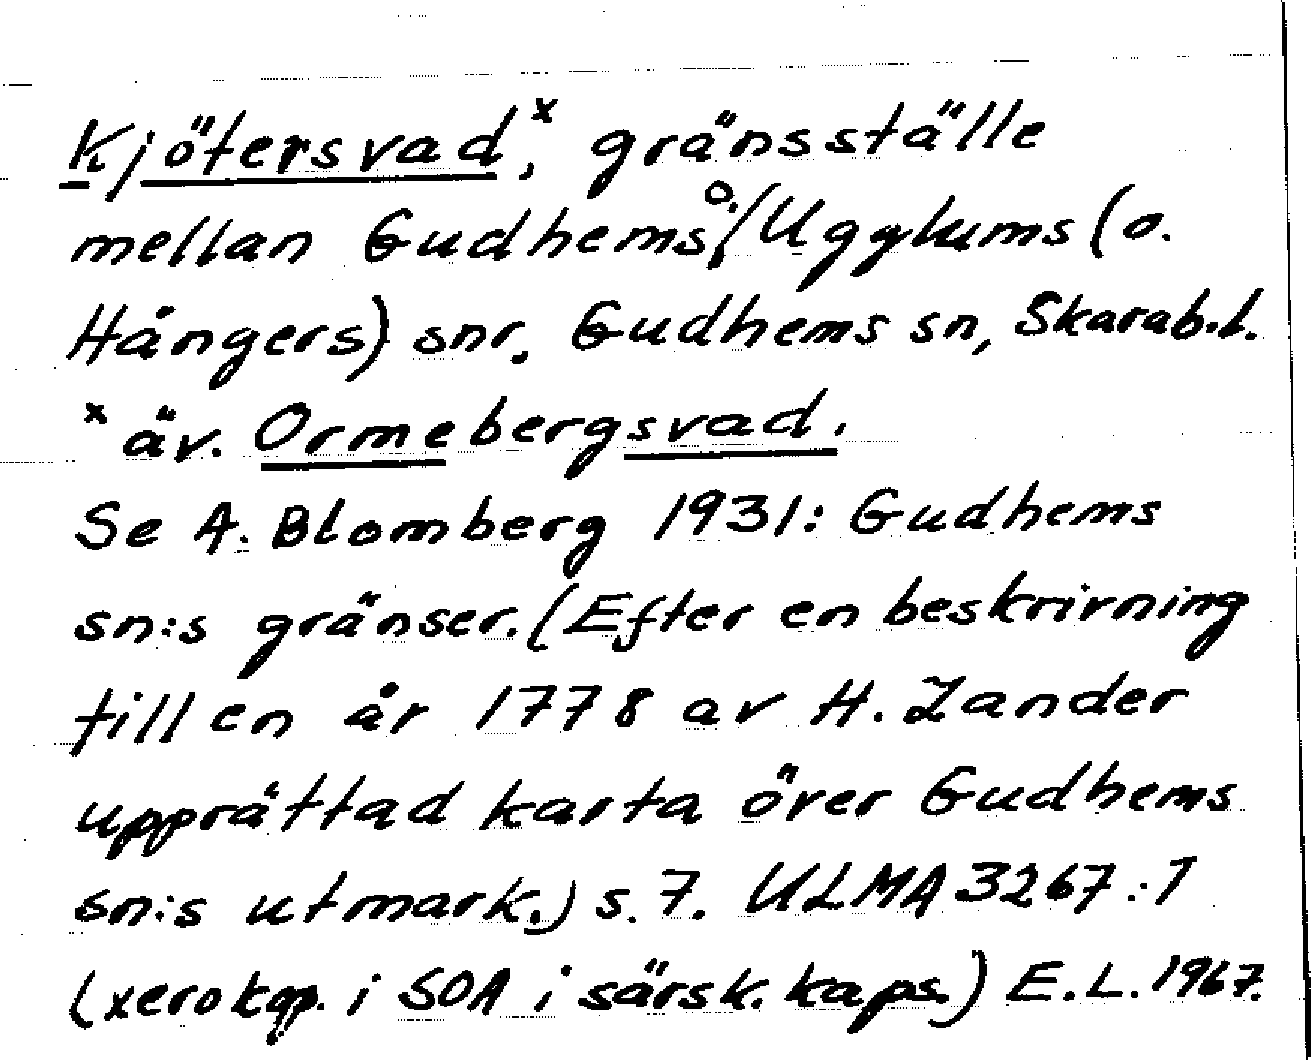 Kjötersvad,ˣ gränsställe
mellan Gudhems o./Ugglums (o.
Hångers) snr. Gudhems sn, Skarab.l.
ˣ äv. Ormebergsvad.
Se A. Blomberg 1931: Gudhems
sn:s gränser. (Efter en beskrivning
till en år 1778 av H. Zander
upprättad karta över Gudhems
sn:s utmark.) s. 7. ULMA 3267:1
(xerokop. i SOA i särsk. kaps.) E.L. 1967.